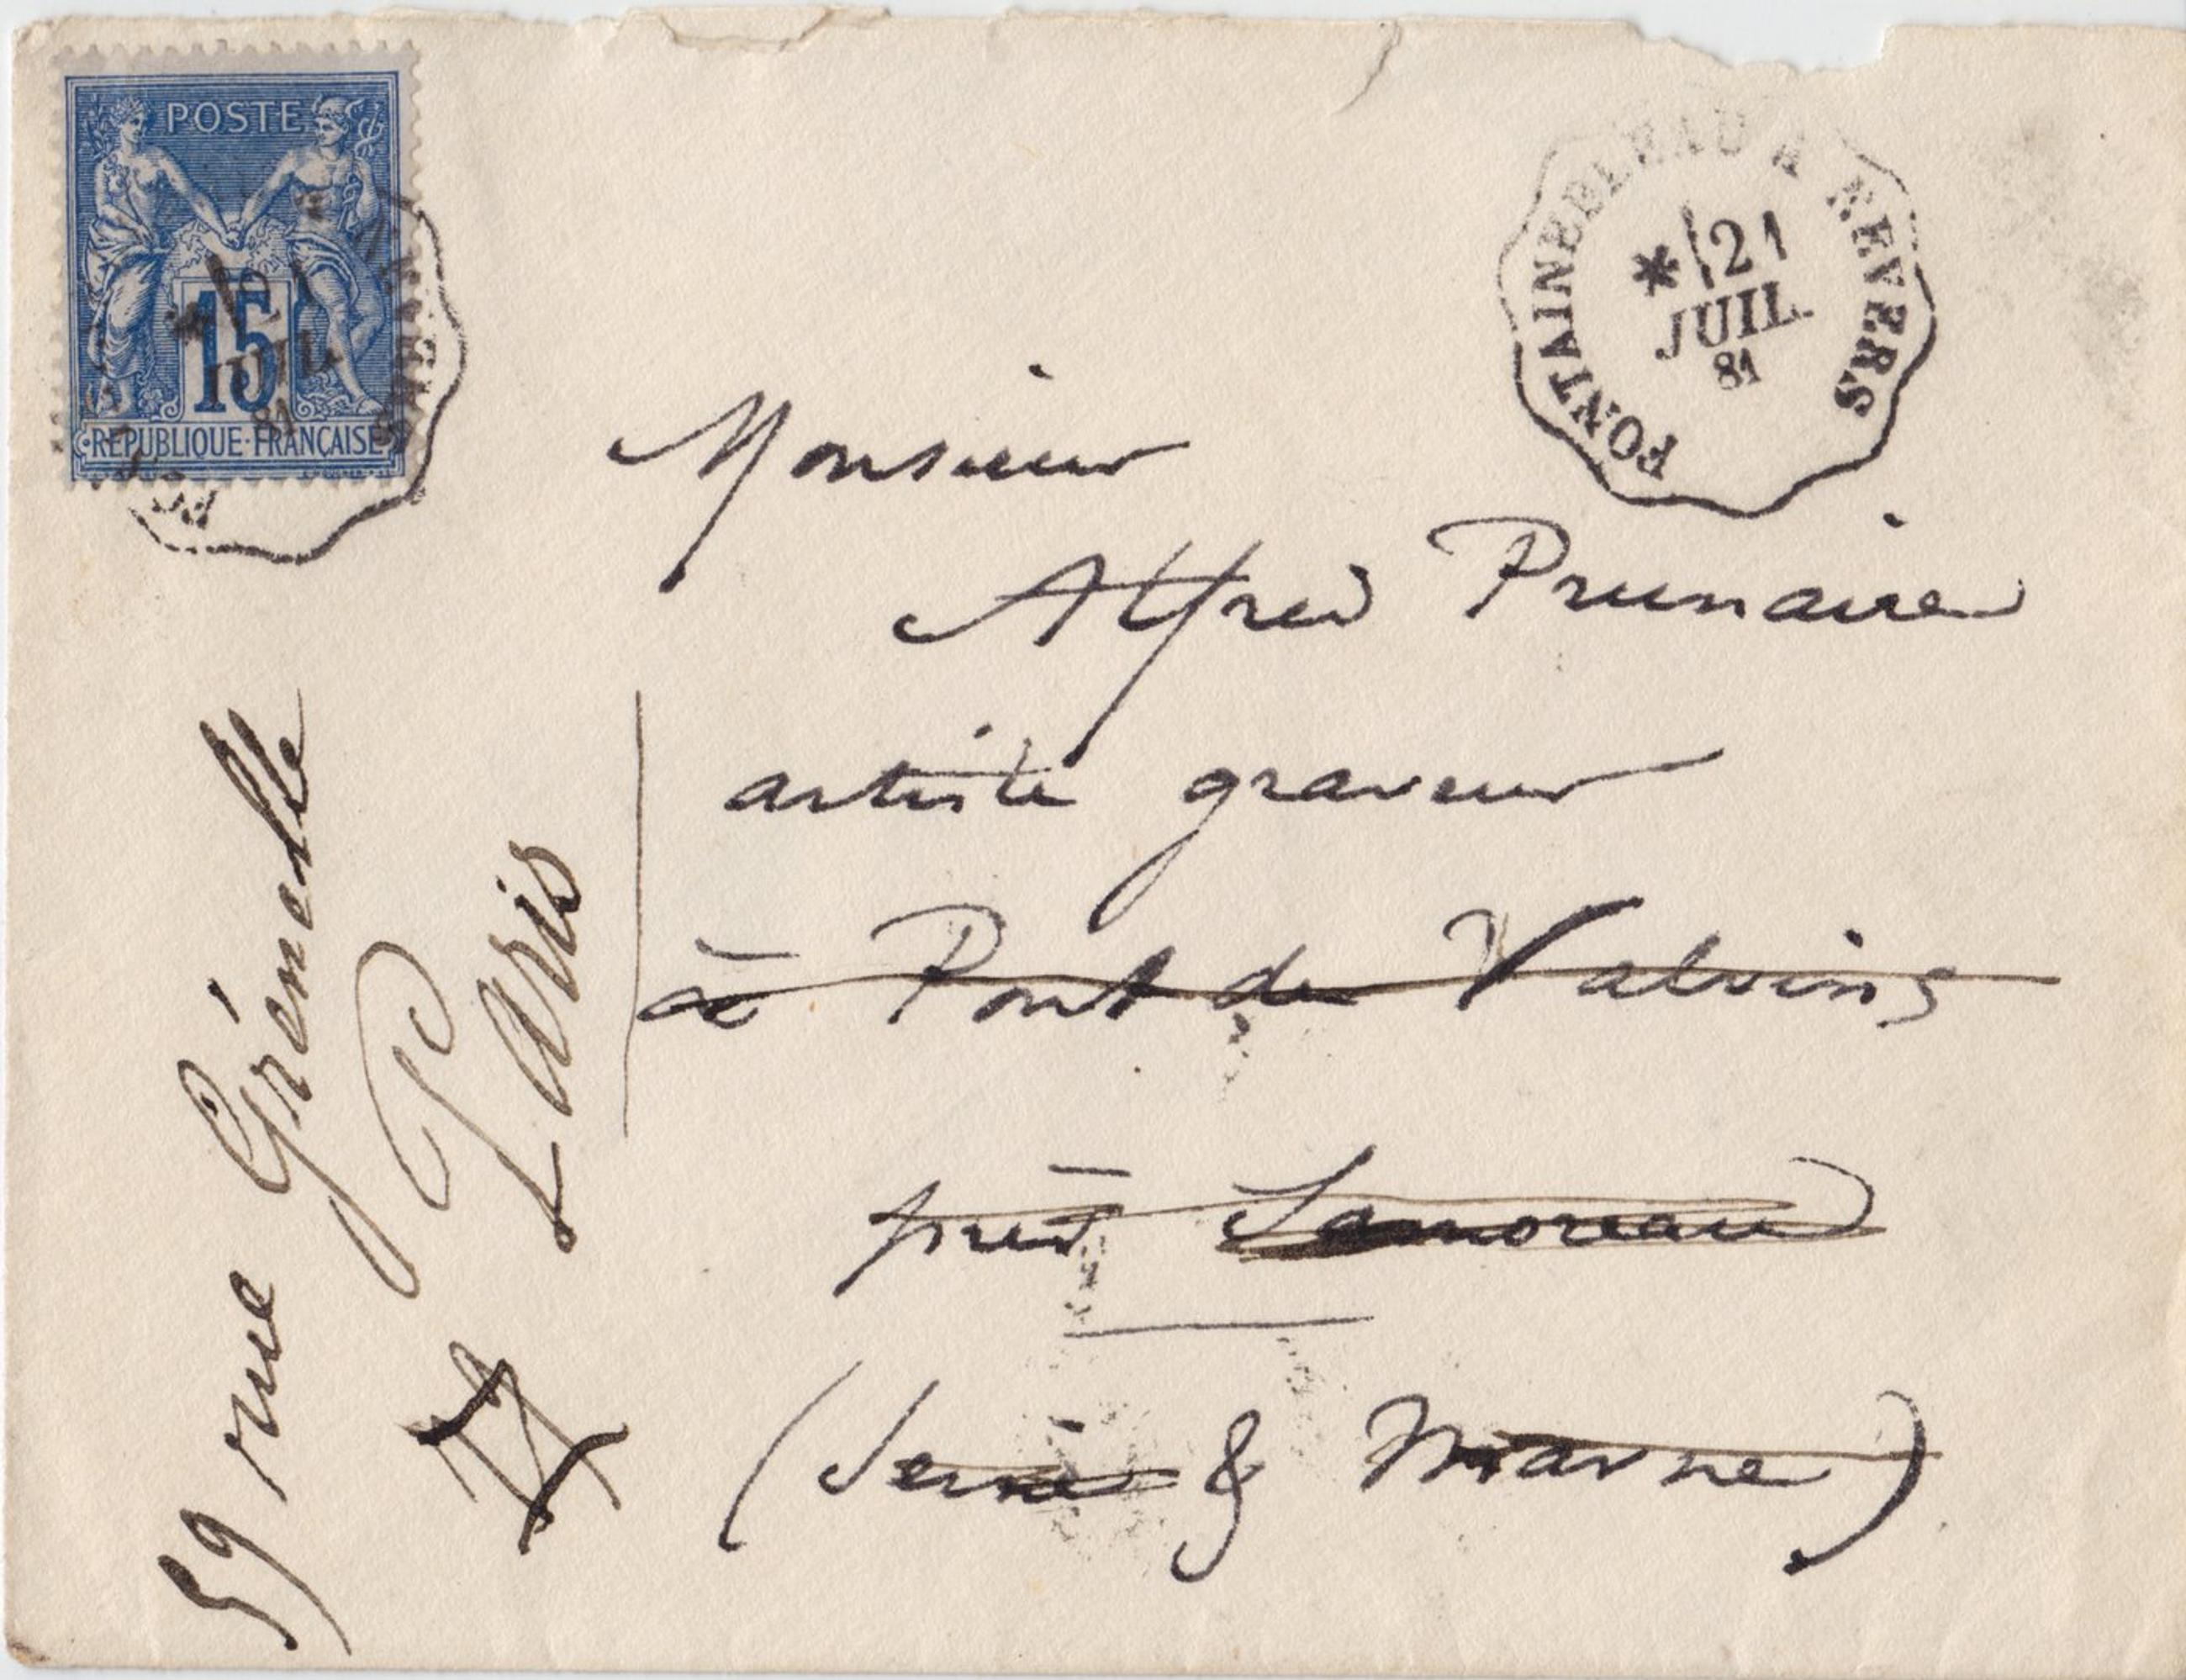 POSTE
15
REPUBLIQUE FRANÇAISE
21
JUIL
81
NEVERS
FONTAINEBLEAU A NEVERS
* 21
JUIL.
81
Monsieur
Alfred Prunaire
artiste graveur
à Pont de Valvins
près Samoreau
(Seine & Marne)
59 rue Grénelle
Paris